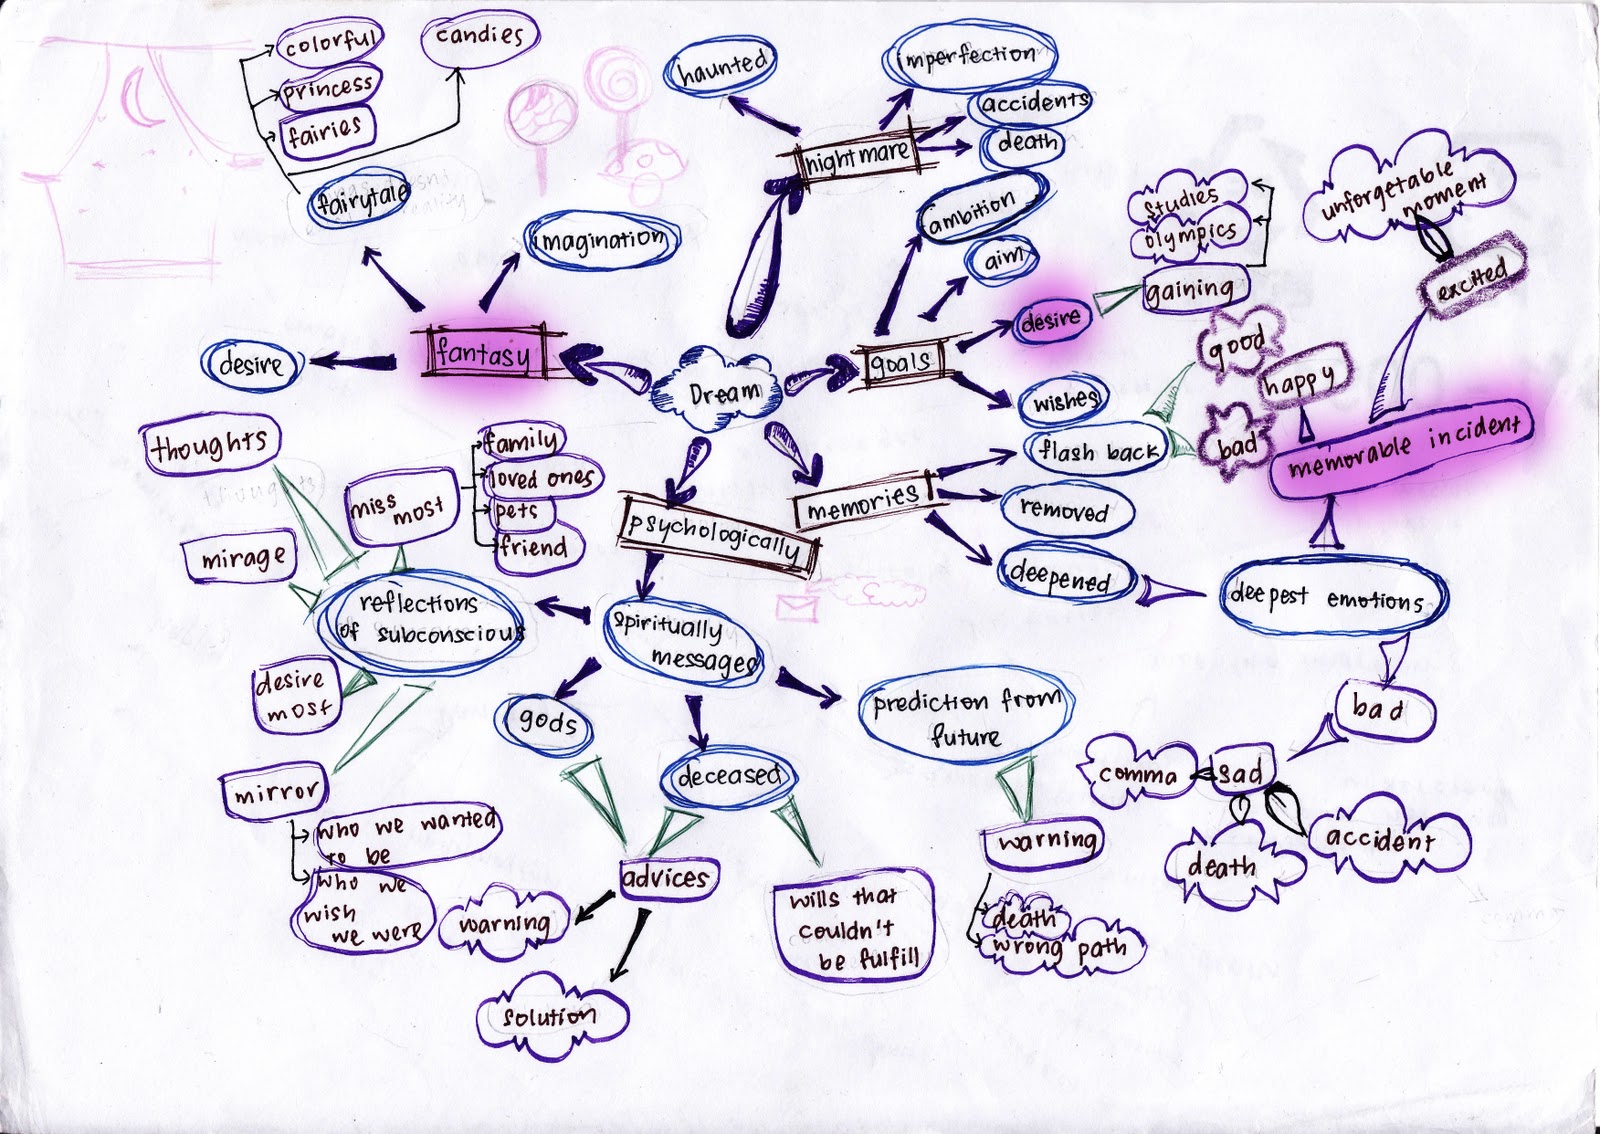 colorful
candies
princess
fairies
fairytale
imagination
desire
fantasy
Dream
haunted
imperfection
accidents
death
nightmare
ambition
aim
goals
desire
wishes
gaining
studies
olympics
unforgetable
moment
excited
good
happy
bad
memorable incident
flash back
memories
removed
deepened
deepest emotions
bad
sad
comma
death
accident
psychologically
spiritually
messages
reflections
of subconscious
thoughts
mirage
miss
most
family
loved ones
pets
friend
desire
most
mirror
who we wanted
to be
who we
wish
we were
gods
deceased
advices
warning
solution
wills that
couldn't
be fulfill
prediction from
future
warning
death
wrong path